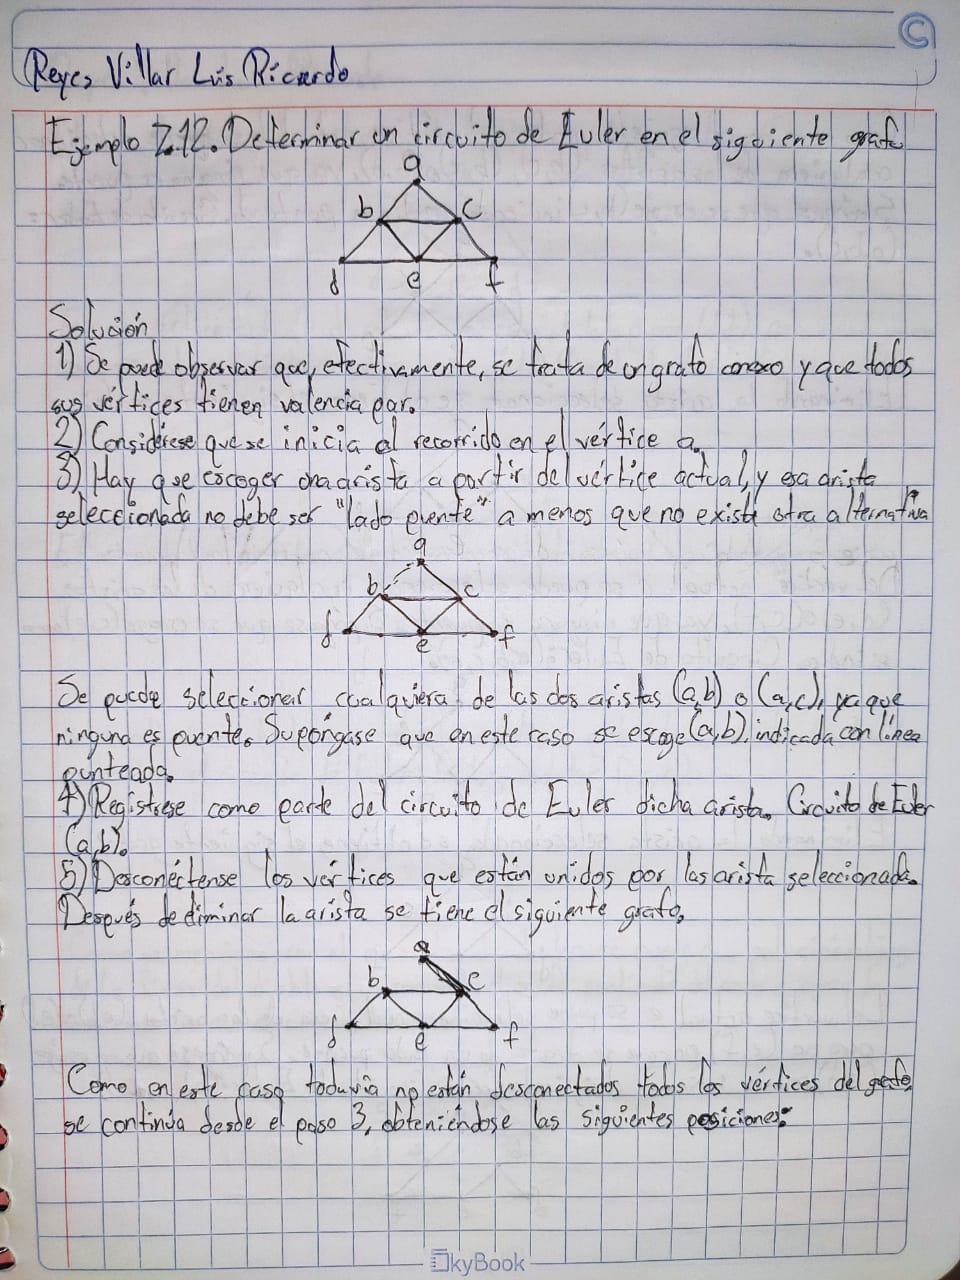 Reyes Villar Luis Ricardo
Ejemplo 7.12. Determinar un circuito de Euler en el siguiente grafo
a
b c
d e f
Solución
1) Se puede observar que, efectivamente, se trata de un grafo conexo y que todos
sus vértices tienen valencia par.
2) Considérese que se inicia al recorrido en el vértice a.
3) Hay que escoger una arista a partir del vértice actual, y esa arista
seleccionada no debe ser "lado puente" a menos que no exista otra alternativa
a
b c
d e f
Se puede seleccionar cualquiera de las dos aristas (a,b) o (a,c), ya que
ninguna es puente. Supóngase que en este caso se escoge (a,b), indicada con línea
punteada.
4) Regístrese como parte del circuito de Euler dicha arista. Circuito de Euler
(a,b).
5) Desconéctense los vértices que están unidos por las arista seleccionada.
Después de eliminar la arista se tiene el siguiente grafo.
a
b c
d e f
Como en este caso toduvía no están desconectados todos los vértices del grafo
se continúa desde el paso 3, obteniéndose las siguientes posiciones:
SkyBook